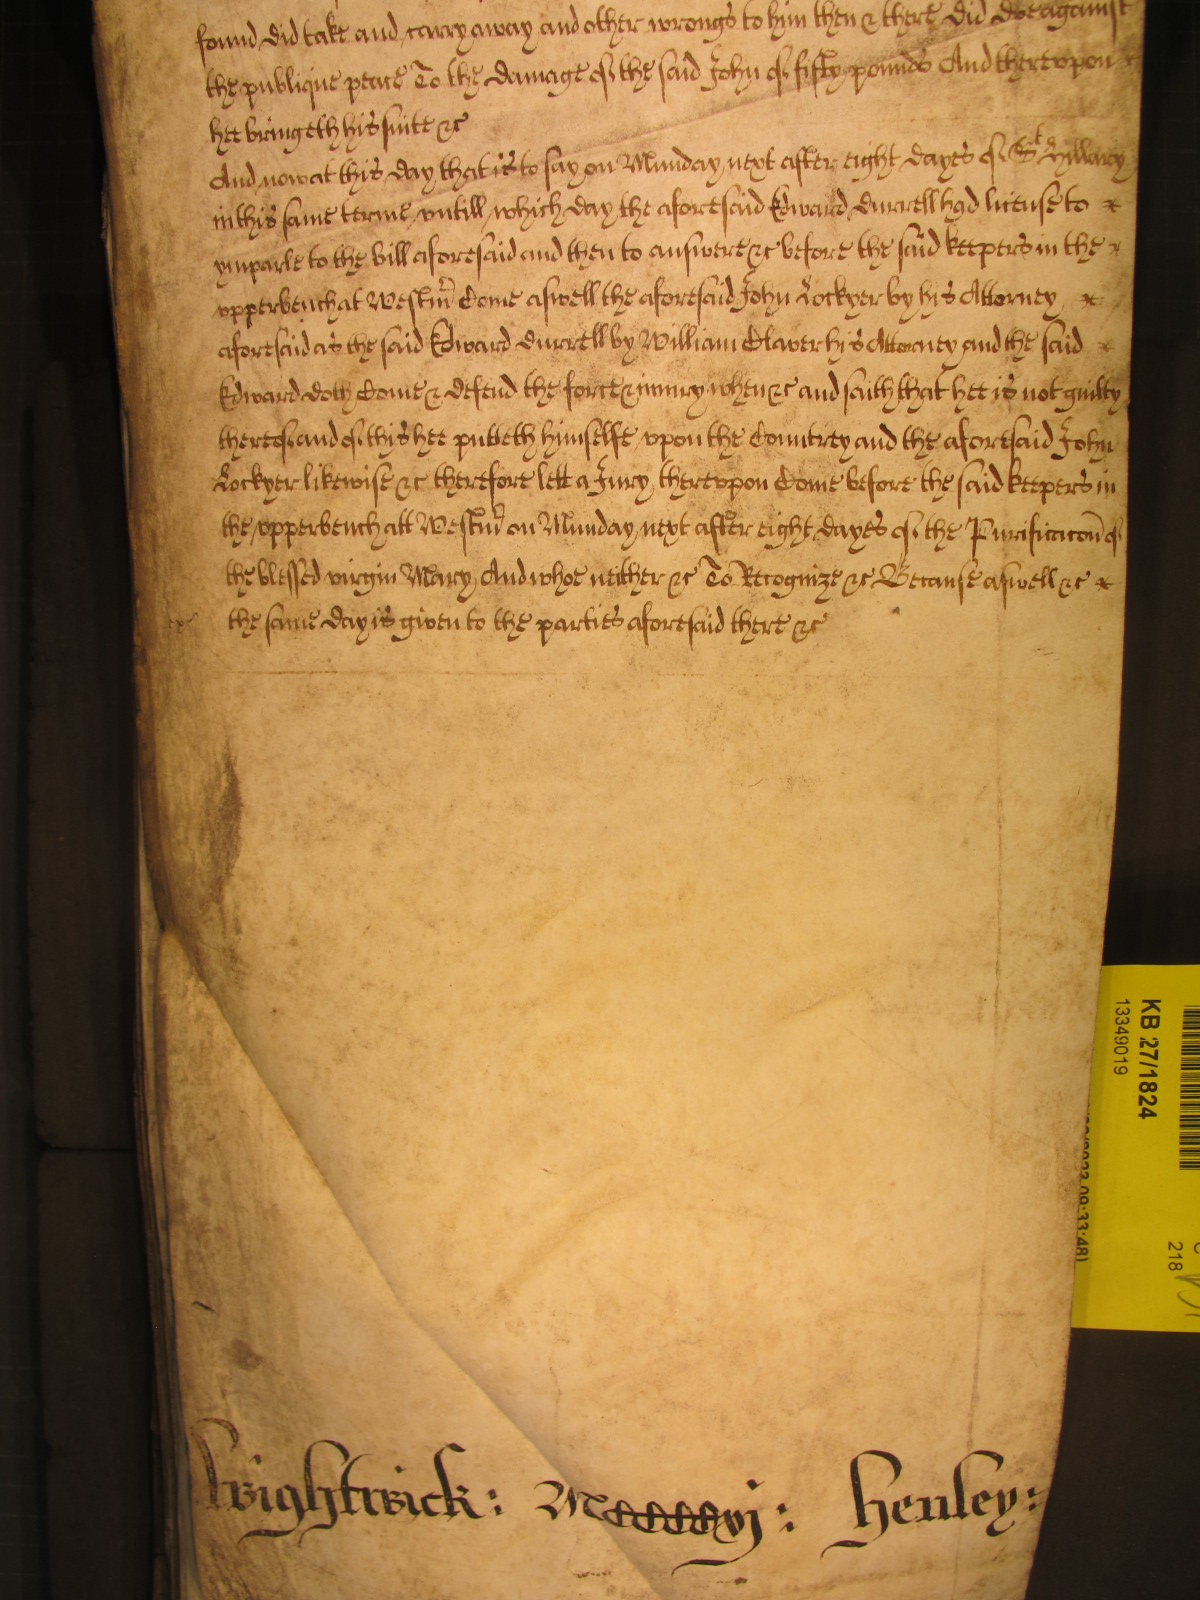 found did take and carry away and other wrongs to him then & there did doe against
the publique peace To the damage of the said John of fifty pounds And therevpon
hee bringeth his suite &c
And now at this day that is to say on Munday next after eight dayes of St Hillary
in this same terme vntill which day the aforesaid Edward Durrell had license to
ymparle to the bill aforesaid and then to answere &c before the said keepers in the
vpperbench at Westmr Come aswell the aforesaid John Lockyer by his Attorney
aforesaid as the said Edward Durrell by William Claver his Attorney and the said
Edward doth Come & defend the force & iniury when &c and saith that hee is not guilty
thereof and of this hee putteth himselfe vpon the Countrey and the aforesaid John
Lockyer likewise &c therefore lett a Jury therevpon Come before the said keepers in
the vpperbench att Westmr on Munday next after eight dayes of the Purificacon of
the blessed virgin Mary And whoe neither &c To Recognize &c Because aswell &c
the same day is given to the parties aforesaid there &c
Wightwick: Henley:
KB 27/1824
13349019
09:33:48)
218